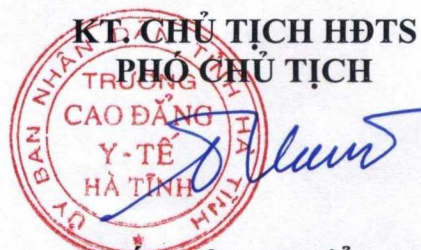 KT. CHỦ TỊCH HĐTS
PHÓ CHỦ TỊCH
ỦY BAN NHÂN DÂN TỈNH HÀ TĨNH
TRƯỜNG
CAO ĐẲNG
Y - TẾ
HÀ TĨNH